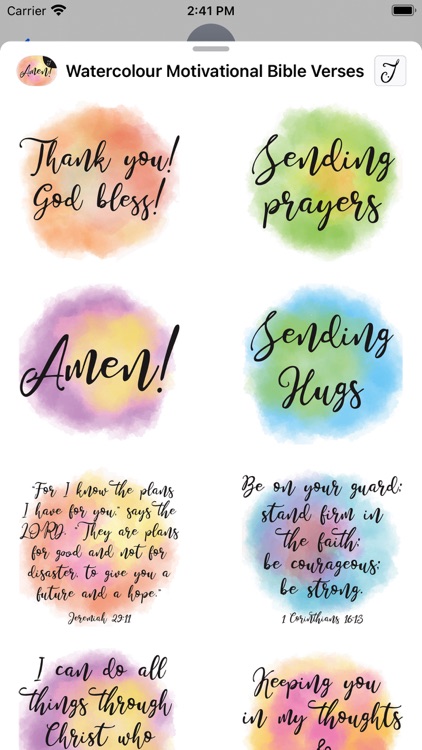 Carrier 2:41 PM
Amen! Watercolour Motivational Bible Verses J
Thank you!
God bless!
Sending
prayers
Amen!
Sending
Hugs
"For I know the plans
I have for you," says the
LORD. "They are plans
for good and not for
disaster, to give you a
future and a hope."
Jeremiah 29:11
Be on your guard;
stand firm in
the faith;
be courageous;
be strong.
1 Corinthians 16:13
I can do all
things through
Christ who
Keeping you
in my thoughts